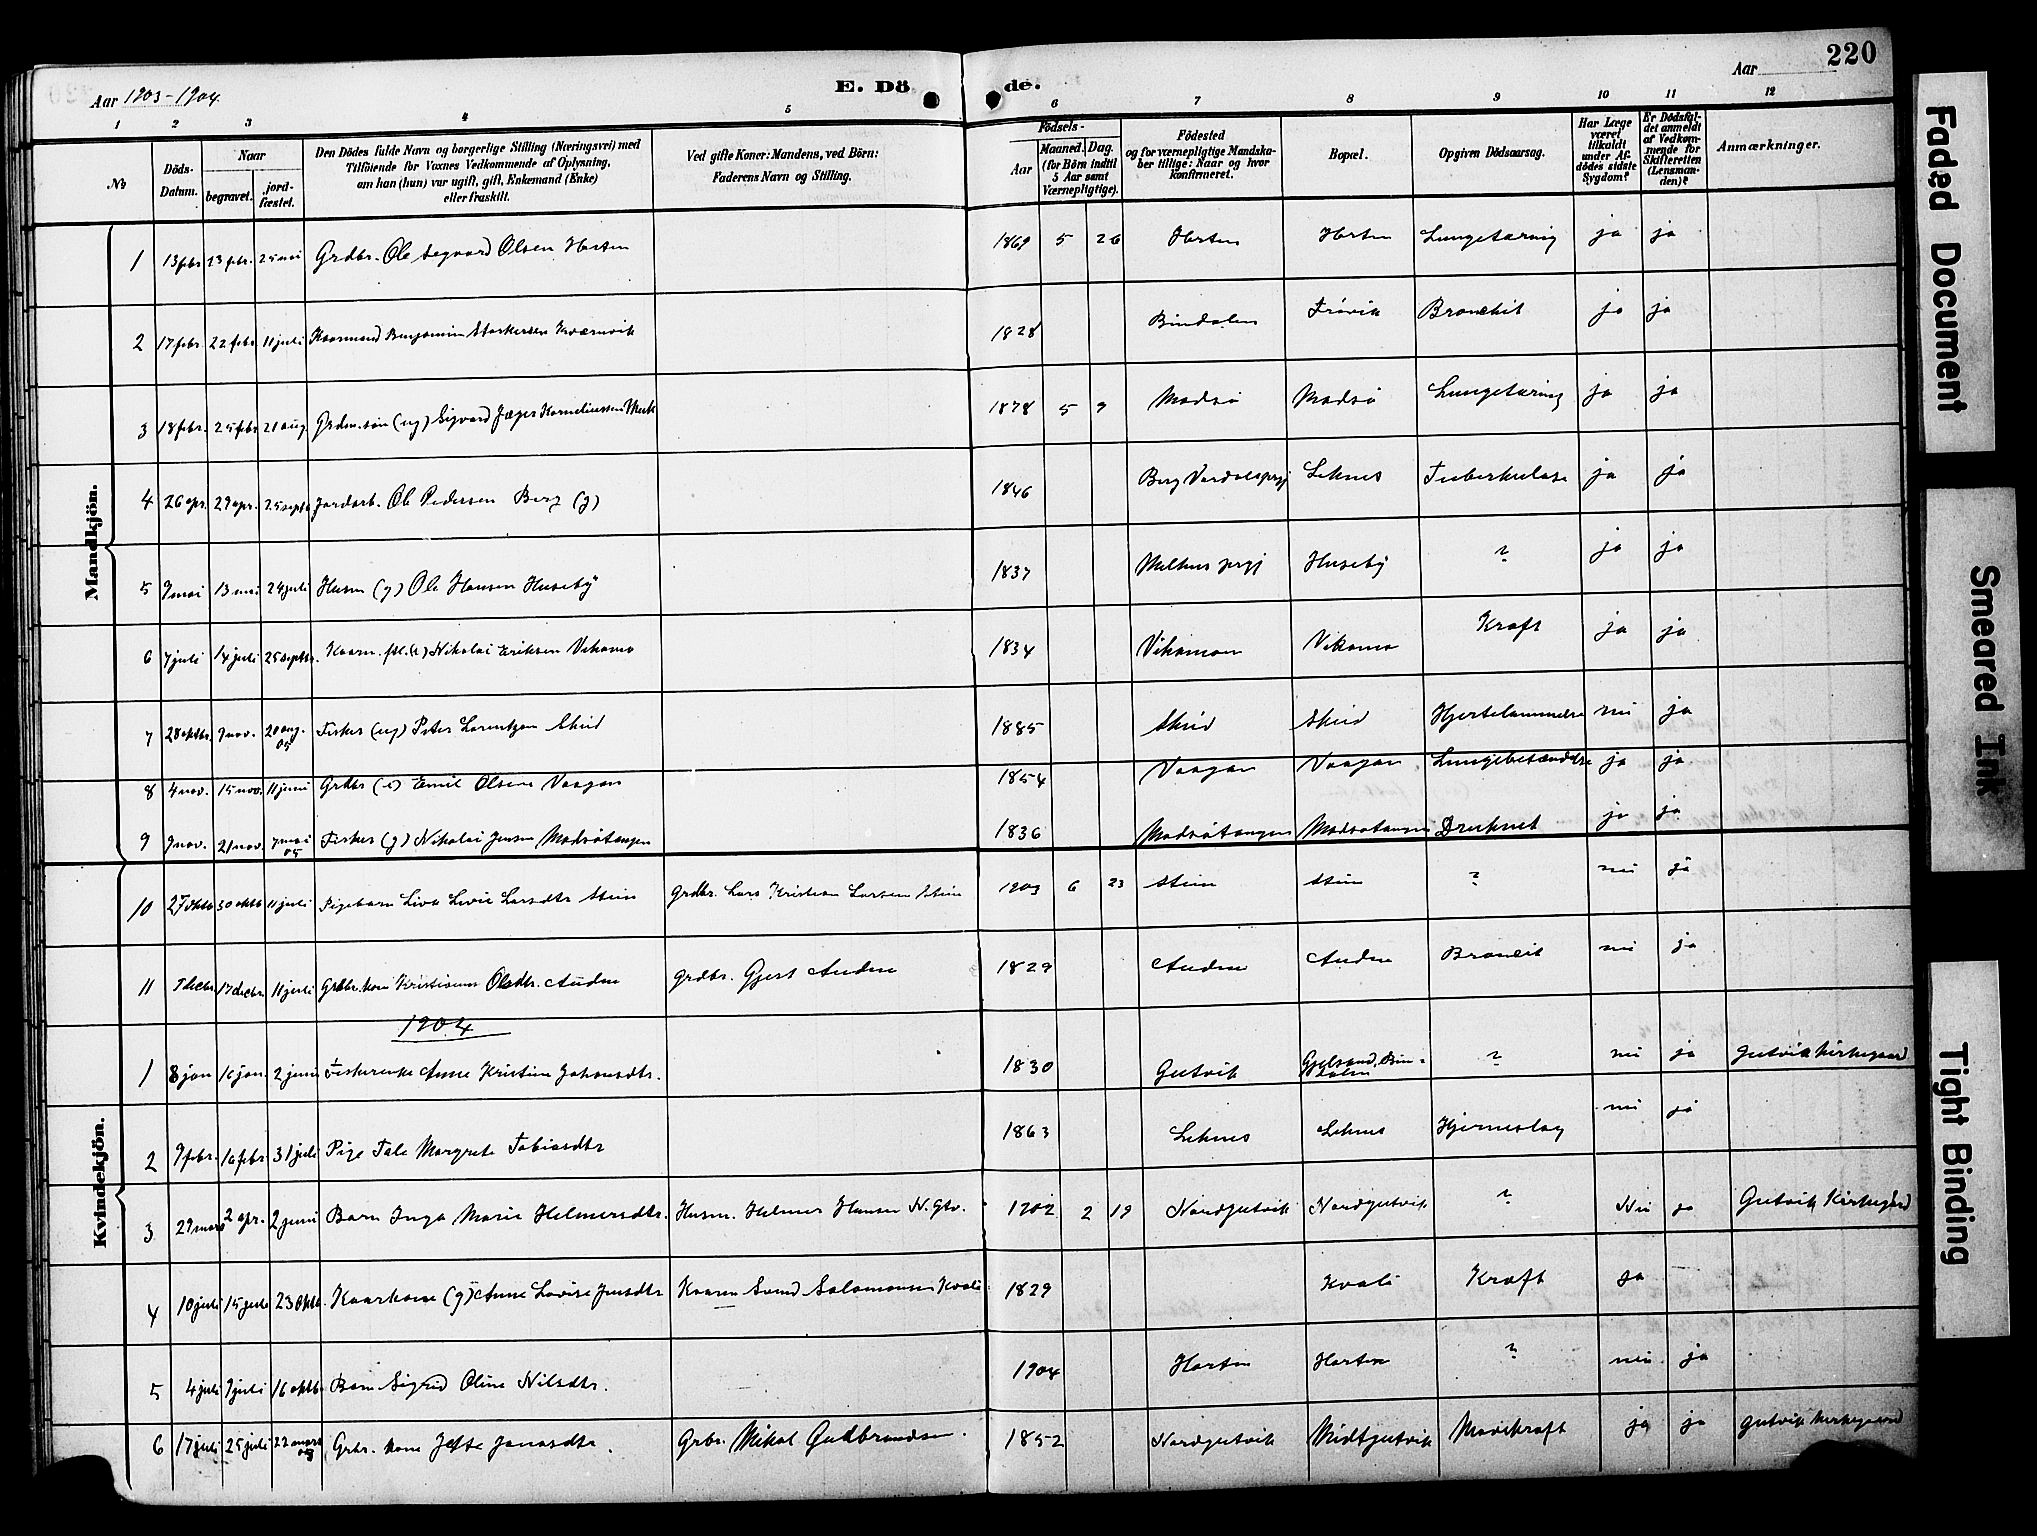 220
Aar 1903-1904
E. Dö de.
Aar
1 2 3 4 5 6 7 8 9 10 11 12
No
Döds-Datum.
Naar
begravet.
jordfæstet.
Den Dödes fulde Navn og borgerlige Stilling (Næringsvei) med Tilföiende for Voxnes Vedkommende af Oplysning, om han (hun) var ugift, gift, Enkemand (Enke) eller fraskilt.
Ved gifte Koner: Mandens, ved Börn: Faderens Navn og Stilling.
Födsels-
Aar
Maaned. Dag.
(for Börn indtil 5 Aar samt Værnepligtige).
Födested og for værnepligtige Mandskaber tillige: Naar og hvor konfirmeret.
Bopæl.
Opgiven Dödsaarsag.
Har Læge været tilkaldt under Afdödes sidste Sygdom?
Er Dödsfaldet anmeldt af Vedkommende for Skifteretten (Lensmanden)?
Anmærkninger.
Mandkjön.
1 13 febr. 23 febr. 25 mai Grdbr. Ole Segvard Olsen Horten 1869 5 26 Horten Horten Lungetæring ja ja
2 17 febr. 22 febr. 11 juli Kaarmand Benjamin Storkersen Kværnvik 1828 Bindalen Frövik Bronchit ja ja
3 18 febr. 25 febr. 21 aug. Grdm.sön (ug) Sigvard Jæger Korneliussen 1878 5 9 Madsö Madsö Lungetæring ja ja
4 26 apr. 29 apr. 25 septb. Jordarb. Ole Pedersen Berg (g) 1846 Berg Værdalsprgj Leknes Tuberkulose ja ja
5 9 mai 13 mai 24 juli Husm (g) Ole Hansen Huseby 1837 Melhus prgj Huseby ? ja ja
6 7 juli 14 juli 25 septbr. Kaarm. fsk. (e) Nikolai Eriksen Vikamo 1834 Vikamoen Vikamo Kræft ja ja
7 28 oktbr. 9 nov. 20 aug. 05 Fisker (ug) Peter Lorentzen Skeid 1885 Skeid Skeid Hjertelammelse nei ja
8 4 nov. 15 nov. 11 juni Grdbr (e) Emil Olsen Vaagan 1854 Vaagan Vaagan Lungebetændelse ja ja
9 9 nov. 21 nov. 7 mai 05 Fisker (g) Nikolai Jensen Madsötangen 1836 Madsötangen Madsötangen Druknet ja ja
Kvindekjön.
10 27 oktb 30 oktb 11 juli Pigebarn Livie Larsdtr Stein Grdbr. Lars Kristian Larsen Stein 1903 6 23 Stein Stein ? nei ja
11 7 decbr. 17 decbr. 11 juli Grdbr.kone Kristianna Olsdtr. Audne Grdbr. Gjert Audne 1829 Audne Audne Broncit nei ja
1904
1 8 jan 16 jan. 2 juni Fiskerenke Anne Kristine Johansdtr. 1830 Gutvik Gjelsund, Bindalen ? nei ja Gutvik Kirkegaard
2 9 febr. 16 febr 31 juli Pige Tale Margrete Tobiasdtr 1863 Leknes Leknes Hjerneslag nei ja
3 29 mars 2 apr. 2 juni Barn Inga Marie Helmersdtr. Husm. Helmer Hansen N. Gtv. 1902 2 19 Nordgutvik Nordgutvik ? Nei ja Gutvik Kirkegård
4 10 juli 15 juli 23 oktb. Kaarkone (g) Anne Lovise Jensdtr Kaarm Svend Salomonsen Kvali 1829 Kvali Kræft ja
5 4 juli 9 juli 16 oktb. Barn Sigrid Oline Nilsdtr. 1904 Horten Horten ? nei ja
6 17 juli 25 juli 22 mars 05 Grbr. kone Jette Jonasdtr. Grbr. Mikal Gudbrandsen. 1852 Nordgutvik Midtgutvik Mavekræft ja ja Gutvik Kirkegaard
Faded Document
Smeared Ink
Tight Binding